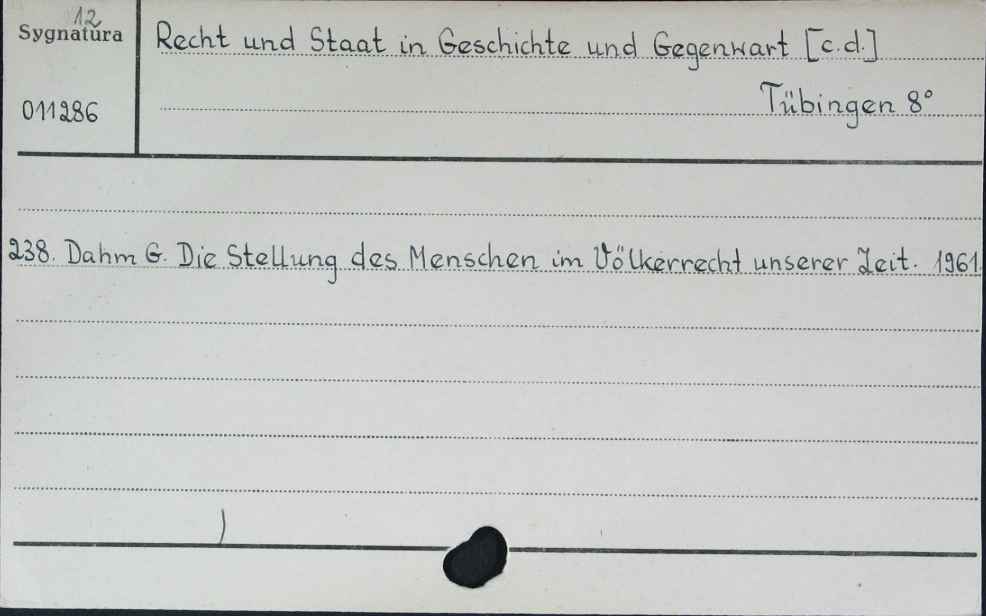 12
Sygnatura
Recht und Staat in Geschichte und Gegenwart [c.d.]
011286
Tübingen 8°
238. Dahm G. Die Stellung des Menschen im Völkerrecht unserer Zeit. 1961.